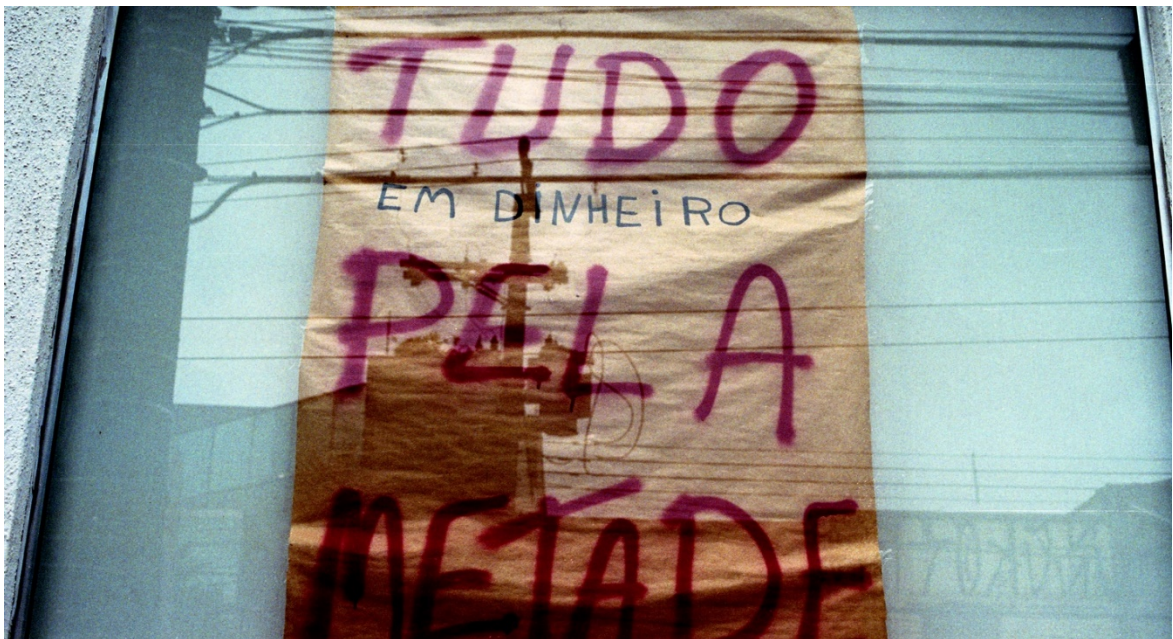 TUDO
EM DINHEIRO
PELA
METADE